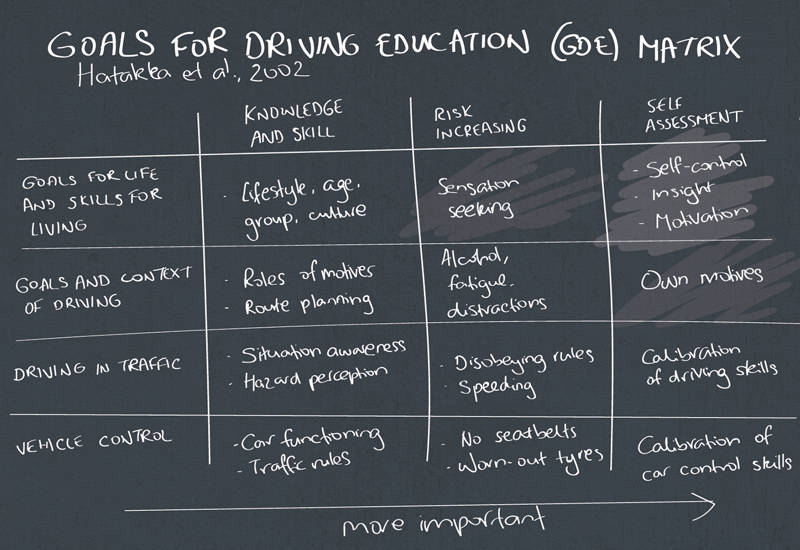 GOALS FOR DRIVING EDUCATION (GDE) MATRIX
Hatakka et al., 2002
KNOWLEDGE
AND SKILL
RISK
INCREASING
SELF
ASSESSMENT
GOALS FOR LIFE
AND SKILLS FOR
LIVING
- Lifestyle, age,
group, culture
Sensation
seeking
- Self-control
- Insight
- Motivation
GOALS AND CONTEXT
OF DRIVING
- Roles of motives
- Route planning
Alcohol,
fatigue.
distractions
Own motives
DRIVING IN TRAFFIC
- Situation awareness
- Hazard perception
- Disobeying rules
- Speeding
Calibration
of driving skills
VEHICLE CONTROL
- Car functioning
- Traffic rules
- No seatbelts
- Worn-out tyres
Calibration of
car control skills
more important